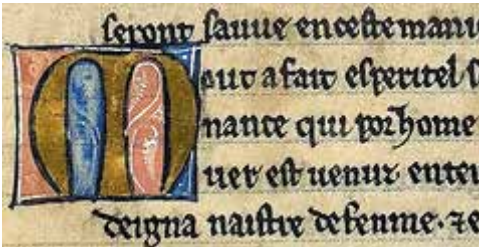 seront sauue en ceste mani
Mout a fait esperitel s
nance qui por home
uer est uenuz enter
deigna naistre de fenme. ⁊ e